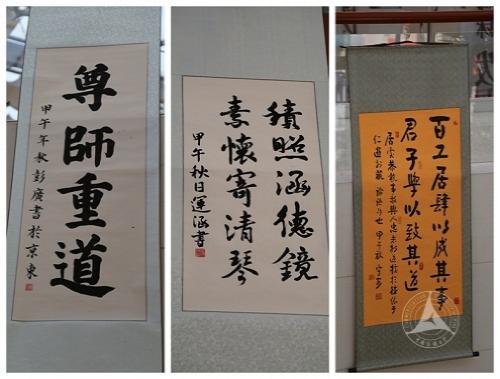 尊師重道
甲午年秋彭廣書於京東
積照涵德鏡
素懷寄清琴
甲午秋日運涵書
百工居肆以成其事
君子學以致其道